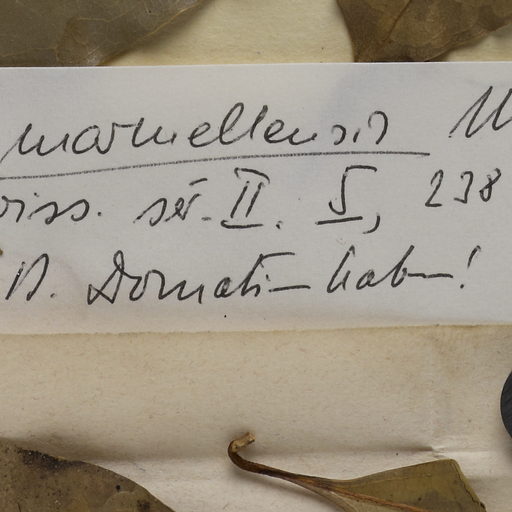 marmellensis
oiss. sér. II. 5, 238
Donati — hab—!